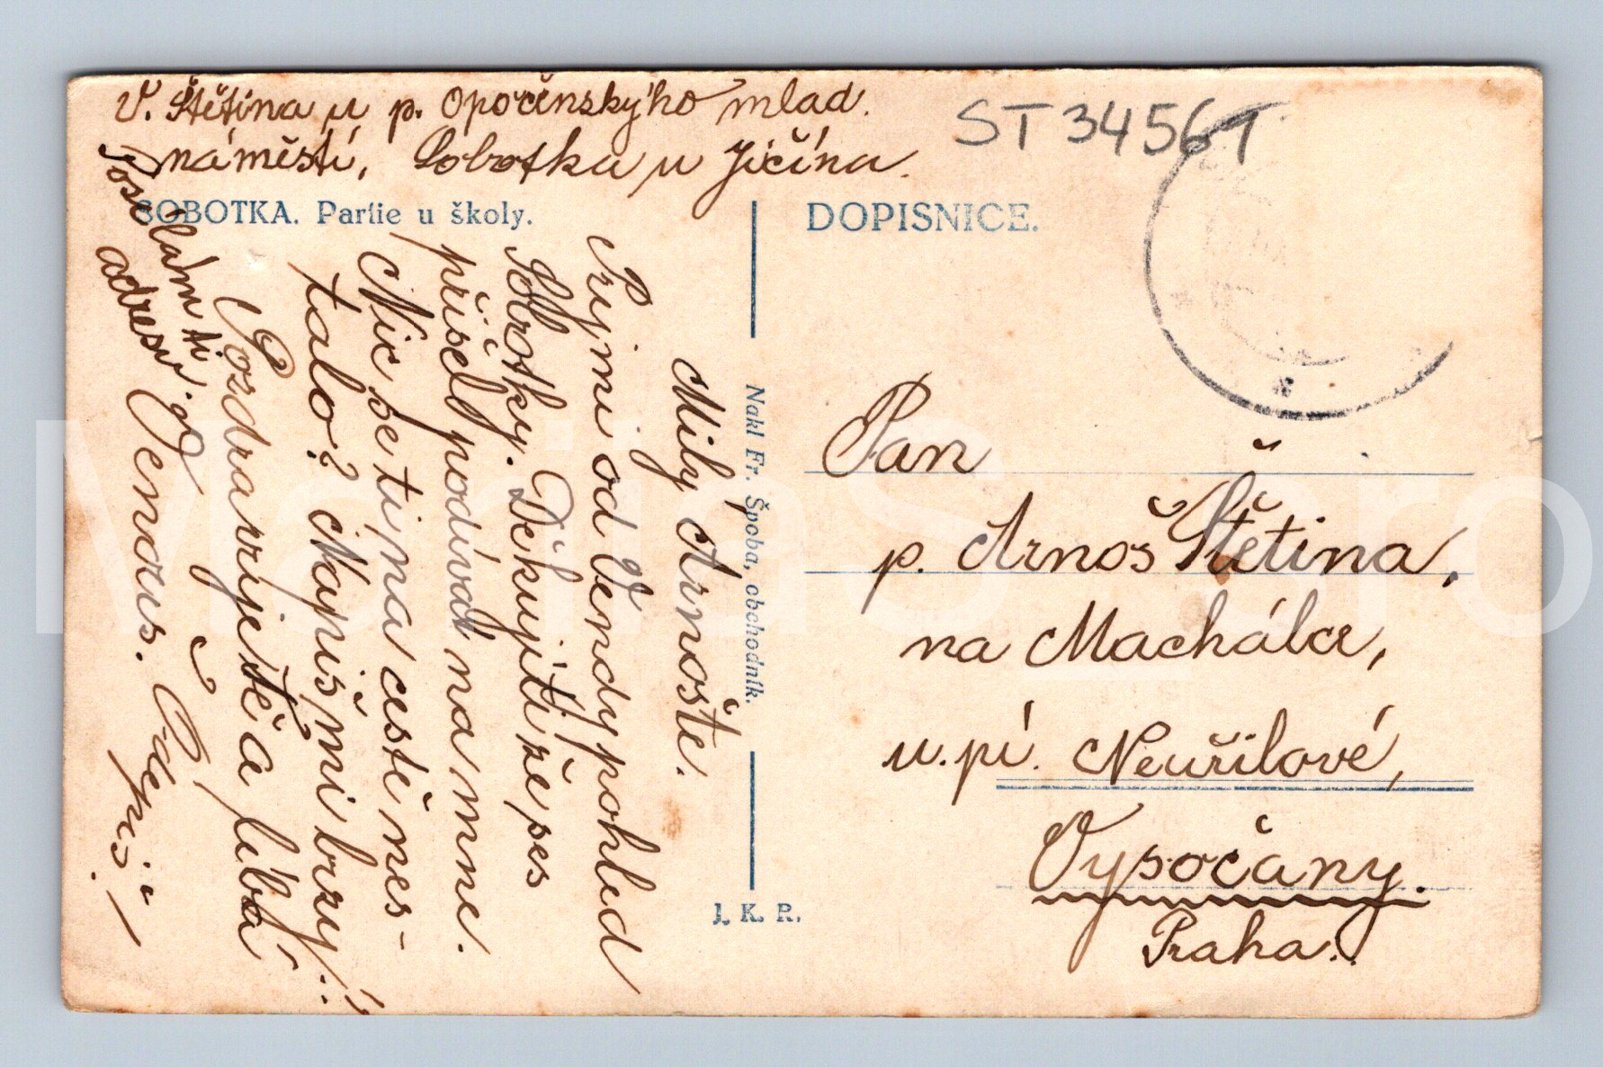 V. Štětina u p. Opočenského mlad.
náměstí, Sobotka u Jičína.
ST 34561
SOBOTKA. Partie u školy.
DOPISNICE.
Milý Arnošte.
Prijmi od Vendy pohled
Sobotky. Děkuji ti že jses
přišel podívat na mne.
Nic se ti na cestě nes-
talo? Napiš mi brzy!
Pozdravuje tě a líbá
Venouš. Odepiš!
Posílám ti
adresu.
Nakl Fr. Špoba, obchodník.
J. K. P.
Pan
p. Arnoš Štětina,
na Machálce,
u. pí. Neuřilové,
Vysočany.
Praha.
MaliaS ro